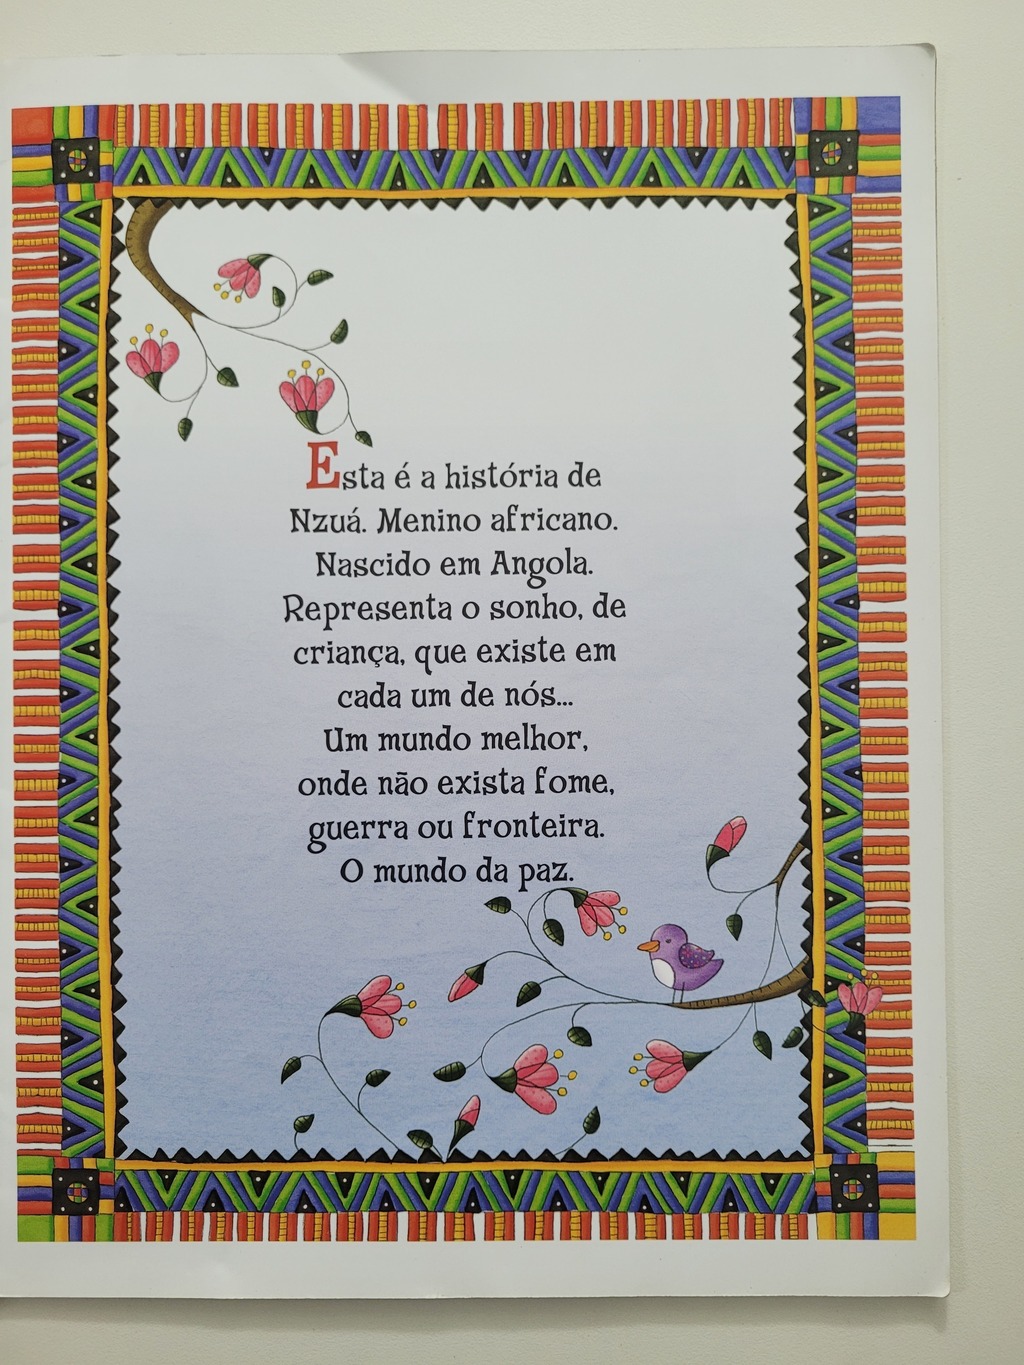 Esta é a história de
Nzuá. Menino africano.
Nascido em Angola.
Representa o sonho, de
criança, que existe em
cada um de nós...
Um mundo melhor,
onde não exista fome,
guerra ou fronteira.
O mundo da paz.